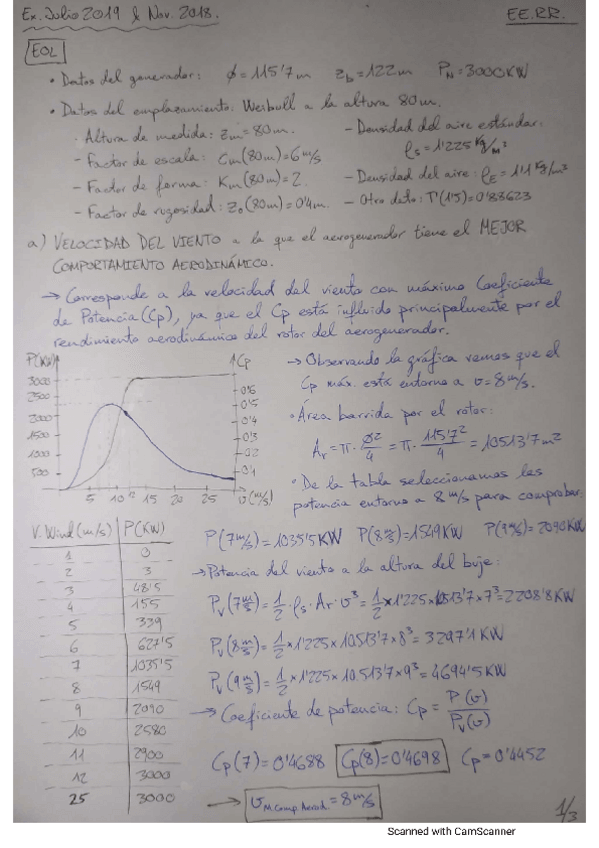 Ex. Julio 2019 & Nov. 2018.
EE.RR.
EOL
• Datos del generador: ϕ=115'7m z_b=122m P_N=3000KW
• Datos del emplazamiento: Weibull a la altura 80m.
- Altura de medida: z_m=80m.
- Factor de escala: C_m(80m)=6 m/s
- Factor de forma: K_m(80m)=2.
- Factor de rugosidad: z_0(80m)=0'4m.
- Densidad del aire estándar:
ρ_s=1'225 Kg/m³
- Densidad del aire: ρ_E=1'1 Kg/m³
- Otro dato: Γ(1'5)=0'88623
a) VELOCIDAD DEL VIENTO a la que el aerogenerador tiene el MEJOR
COMPORTAMIENTO AERODINÁMICO.
→ Corresponde a la velocidad del viento con máximo Coeficiente
de Potencia (Cp), ya que el Cp está influido principalmente por el
rendimiento aerodinámico del rotor del aerogenerador.
P(KW)
Cp
3000
2500
2000
1500
1000
500
0'6
0'5
0'4
0'3
0'2
0'1
5 10 12 15 20 25 v(m/s)
→ Observando la gráfica vemos que el
Cp máx. está entorno a v=8 m/s.
• Área barrida por el rotor:
A_r = π · ϕ²/4 = π · 115'7²/4 = 10513'7 m²
• De la tabla seleccionamos las
potencia entorno a 8 m/s para comprobar:
V. Wind (m/s) P(KW)
1 0
2 3
3 48'5
4 155
5 339
6 627'5
7 1035'5
8 1549
9 2090
10 2580
11 2900
12 3000
25 3000
P(7m/s)=1035'5KW P(8m/s)=1549KW P(9m/s)=2090KW
→ Potencia del viento a la altura del buje:
P_v(7 m/s) = 1/2 · ρ_s · A_r · v³ = 1/2 × 1'225 × 10513'7 × 7³ = 2208'8KW
P_v(8 m/s) = 1/2 × 1'225 × 10513'7 × 8³ = 3297'1 KW
P_v(9 m/s) = 1/2 × 1'225 × 10.513'7 × 9³ = 4694'5KW
→ Coeficiente de potencia: Cp = P(v)/P_v(v)
Cp(7)=0'4688 Cp(8)=0'4698 Cp=0'4452
→ v_M.Comp.Aerod. = 8 m/s
1/3
Scanned with CamScanner